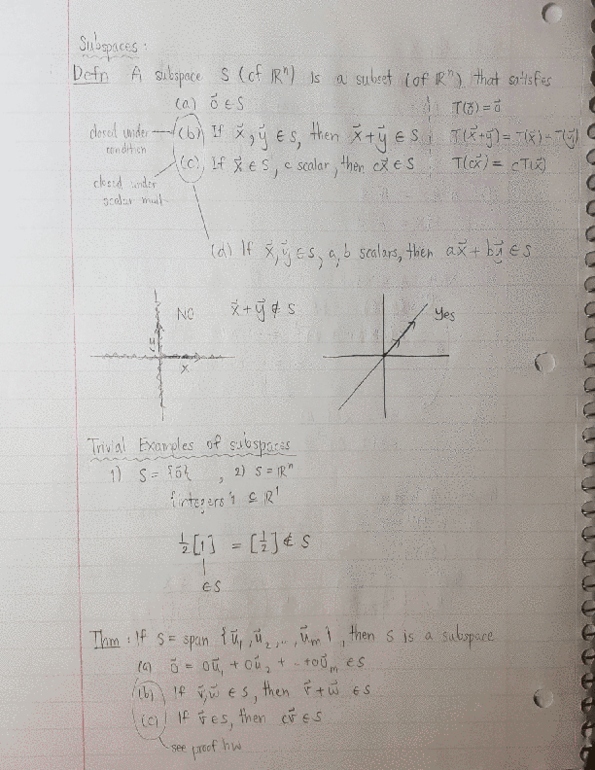 Subspaces:
Defn A subspace S (of ℝⁿ) is a subset (of ℝⁿ) that satisfies
(a) 0⃗ ∈ S T(0⃗) = 0⃗
closed under condition (b) If x⃗, y⃗ ∈ S, then x⃗+y⃗ ∈ S T(x⃗+y⃗) = T(x⃗) + T(y⃗)
closed under scalar mult (c) If x⃗ ∈ S, c scalar, then cx⃗ ∈ S T(cx⃗) = cT(x⃗)
(d) If x⃗, y⃗ ∈ S, a, b scalars, then ax⃗ + by⃗ ∈ S
NO x⃗+y⃗ ∉ S Yes
x
Trivial Examples of subspaces
1) S = {0⃗} , 2) S = ℝⁿ
{integers} ⊆ ℝ¹
½[1] = [½] ∉ S
∈ S
Thm: If S = span {u⃗₁, u⃗₂, .., u⃗ₘ}, then S is a subspace
(a) 0⃗ = 0u⃗₁ + 0u⃗₂ + -- +0u⃗ₘ ∈ S
(b) If v⃗, w⃗ ∈ S, then v⃗ + w⃗ ∈ S
(c) If v⃗ ∈ S, then cv⃗ ∈ S
see proof hw